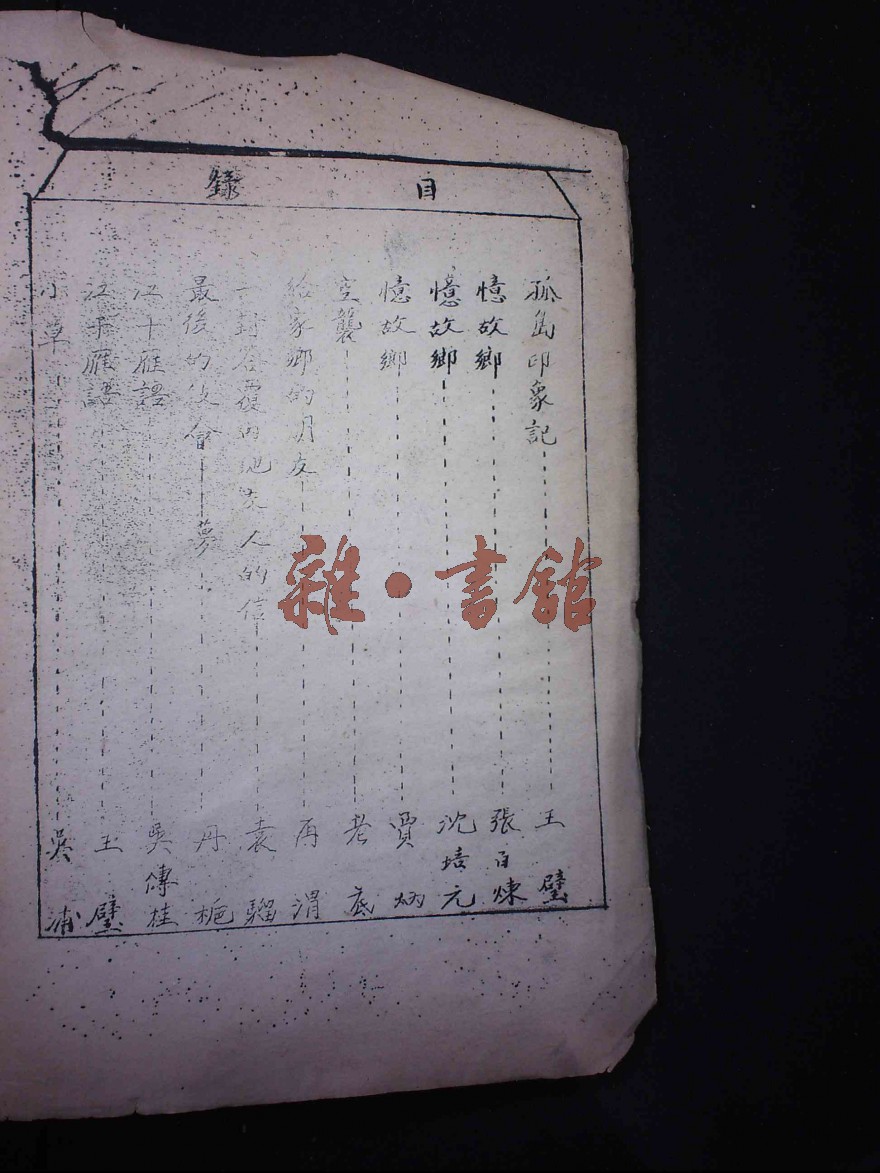 目錄
孤島印象記 王璧
憶故鄉 張百煉
憶故鄉 沈培元
憶故鄉 賈炳
空襲 老底
給家鄉的朋友 再渭
一封答覆內地友人的信 袁騮
最後的 會 夢 丹栀
江干雁語 吳傳桂
江干雁語 王璧
小草 吳浦
雜·書館